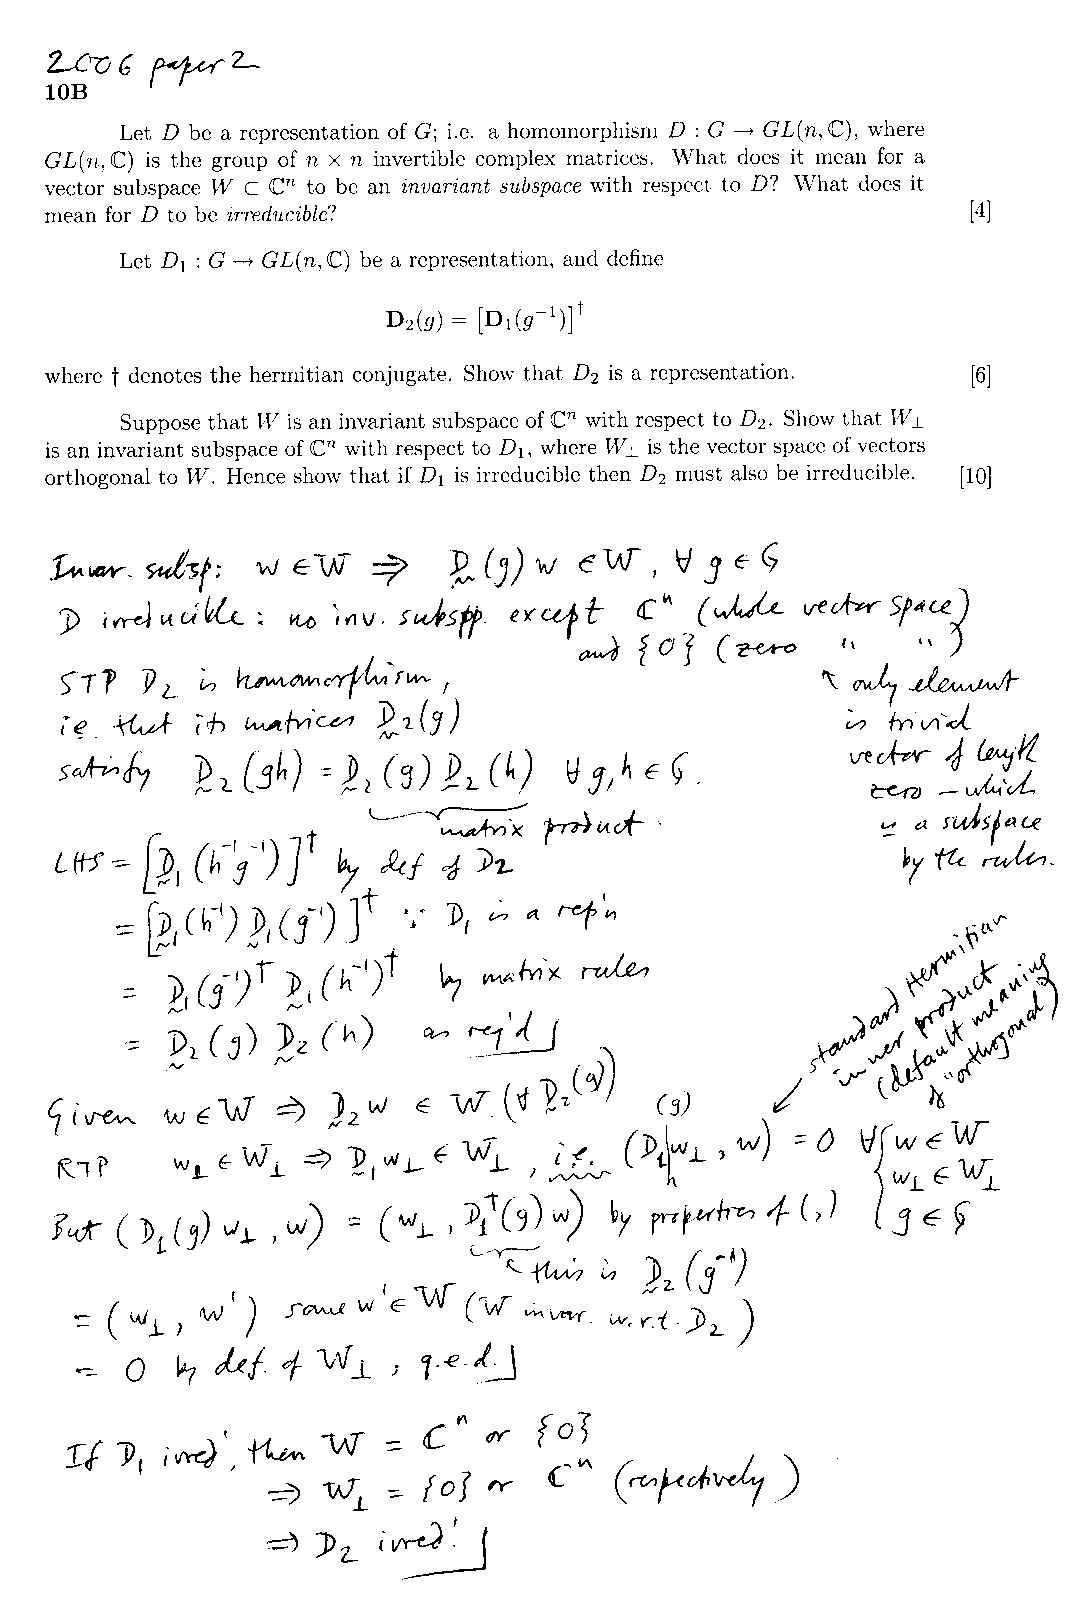 2006 paper 2
10B
Let D be a representation of G; i.e. a homomorphism D : G → GL(n, ℂ), where
GL(n, ℂ) is the group of n × n invertible complex matrices. What does it mean for a
vector subspace W ⊂ ℂⁿ to be an invariant subspace with respect to D? What does it
mean for D to be irreducible? [4]
Let D₁ : G → GL(n, ℂ) be a representation, and define
D₂(g) = [D₁(g⁻¹)]†
where † denotes the hermitian conjugate. Show that D₂ is a representation. [6]
Suppose that W is an invariant subspace of ℂⁿ with respect to D₂. Show that W⊥
is an invariant subspace of ℂⁿ with respect to D₁, where W⊥ is the vector space of vectors
orthogonal to W. Hence show that if D₁ is irreducible then D₂ must also be irreducible. [10]
Invar. subsp: w ∈ W ⇒ D(g) w ∈ W, ∀ g ∈ G
D irreducible: no inv. subspp. except ℂⁿ (whole vector space)
and {0} (zero " ")
↖ only element
is trivial
vector of length
zero – which
is a subspace
by the rules.
STP D₂ is homomorphism,
i.e. that its matrices D₂(g)
satisfy D₂(gh) = D₂(g) D₂(h) ∀ g, h ∈ G.
matrix product.
LHS = [D₁(h⁻¹g⁻¹)]† by def of D₂
= [D₁(h⁻¹) D₁(g⁻¹)]† ∵ D₁ is a rep'n
= D₁(g⁻¹)† D₁(h⁻¹)† by matrix rules
= D₂(g) D₂(h) as req'd
standard Hermitian
inner product
(default meaning
of "orthogonal)
Given w ∈ W ⇒ D₂w ∈ W (∀ D₂(g))
RTP w⊥ ∈ W⊥ ⇒ D₁w⊥ ∈ W⊥, i.e. (D₁(g)w⊥, w) = 0 ∀ { w ∈ W
w⊥ ∈ W⊥
g ∈ G
But (D₁(g) w⊥, w) = (w⊥, D₁†(g) w) by properties of (,)
↖ this is D₂(g⁻¹)
= (w⊥, w') some w' ∈ W (W invar. w.r.t. D₂)
= 0 by def. of W⊥, q.e.d.
If D₁ irred', then W = ℂⁿ or {0}
⇒ W⊥ = {0} or ℂⁿ (respectively)
⇒ D₂ irred'.